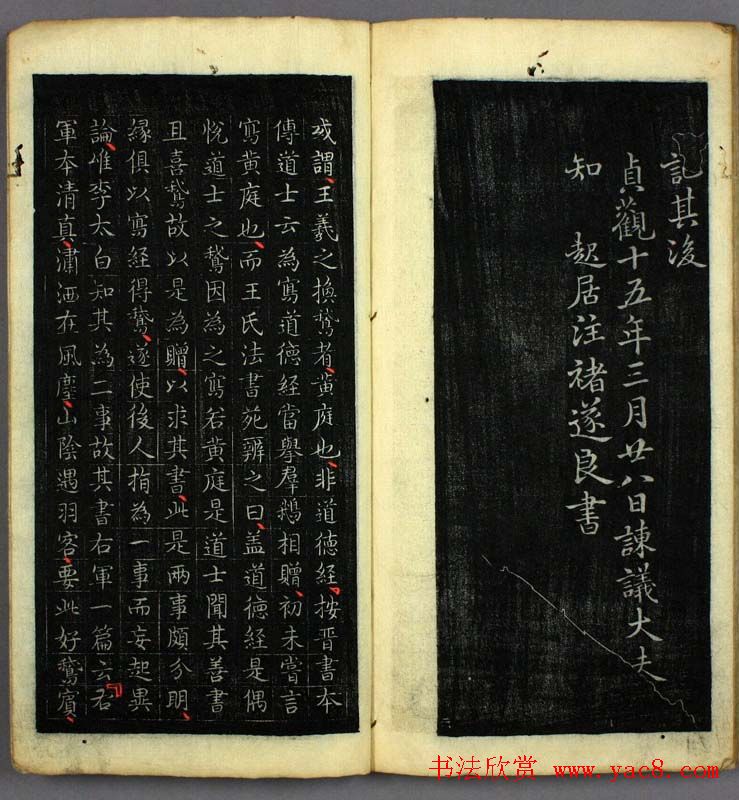 記其後
貞觀十五年三月廿八日諫議大夫
知 起居注褚遂良書
或謂王羲之換鵞者黃庭也非道德經按晉書本
傳道士云為寫道德經當舉羣鵝相贈初未嘗言
寫黃庭也而王氏法書苑辨之曰盖道德經是偶
悅道士之鵞因為之寫若黃庭是道士聞其善書
且喜鵞故以是為贈以求其書此是兩事頗分明
緣俱以寫經得鵞遂使後人指為一事而妄起異
論唯李太白知其為二事故其書右軍一篇云右
軍本清真瀟洒在風塵山陰遇羽客要此好鵞賓
书法欣赏 www.yac8.com